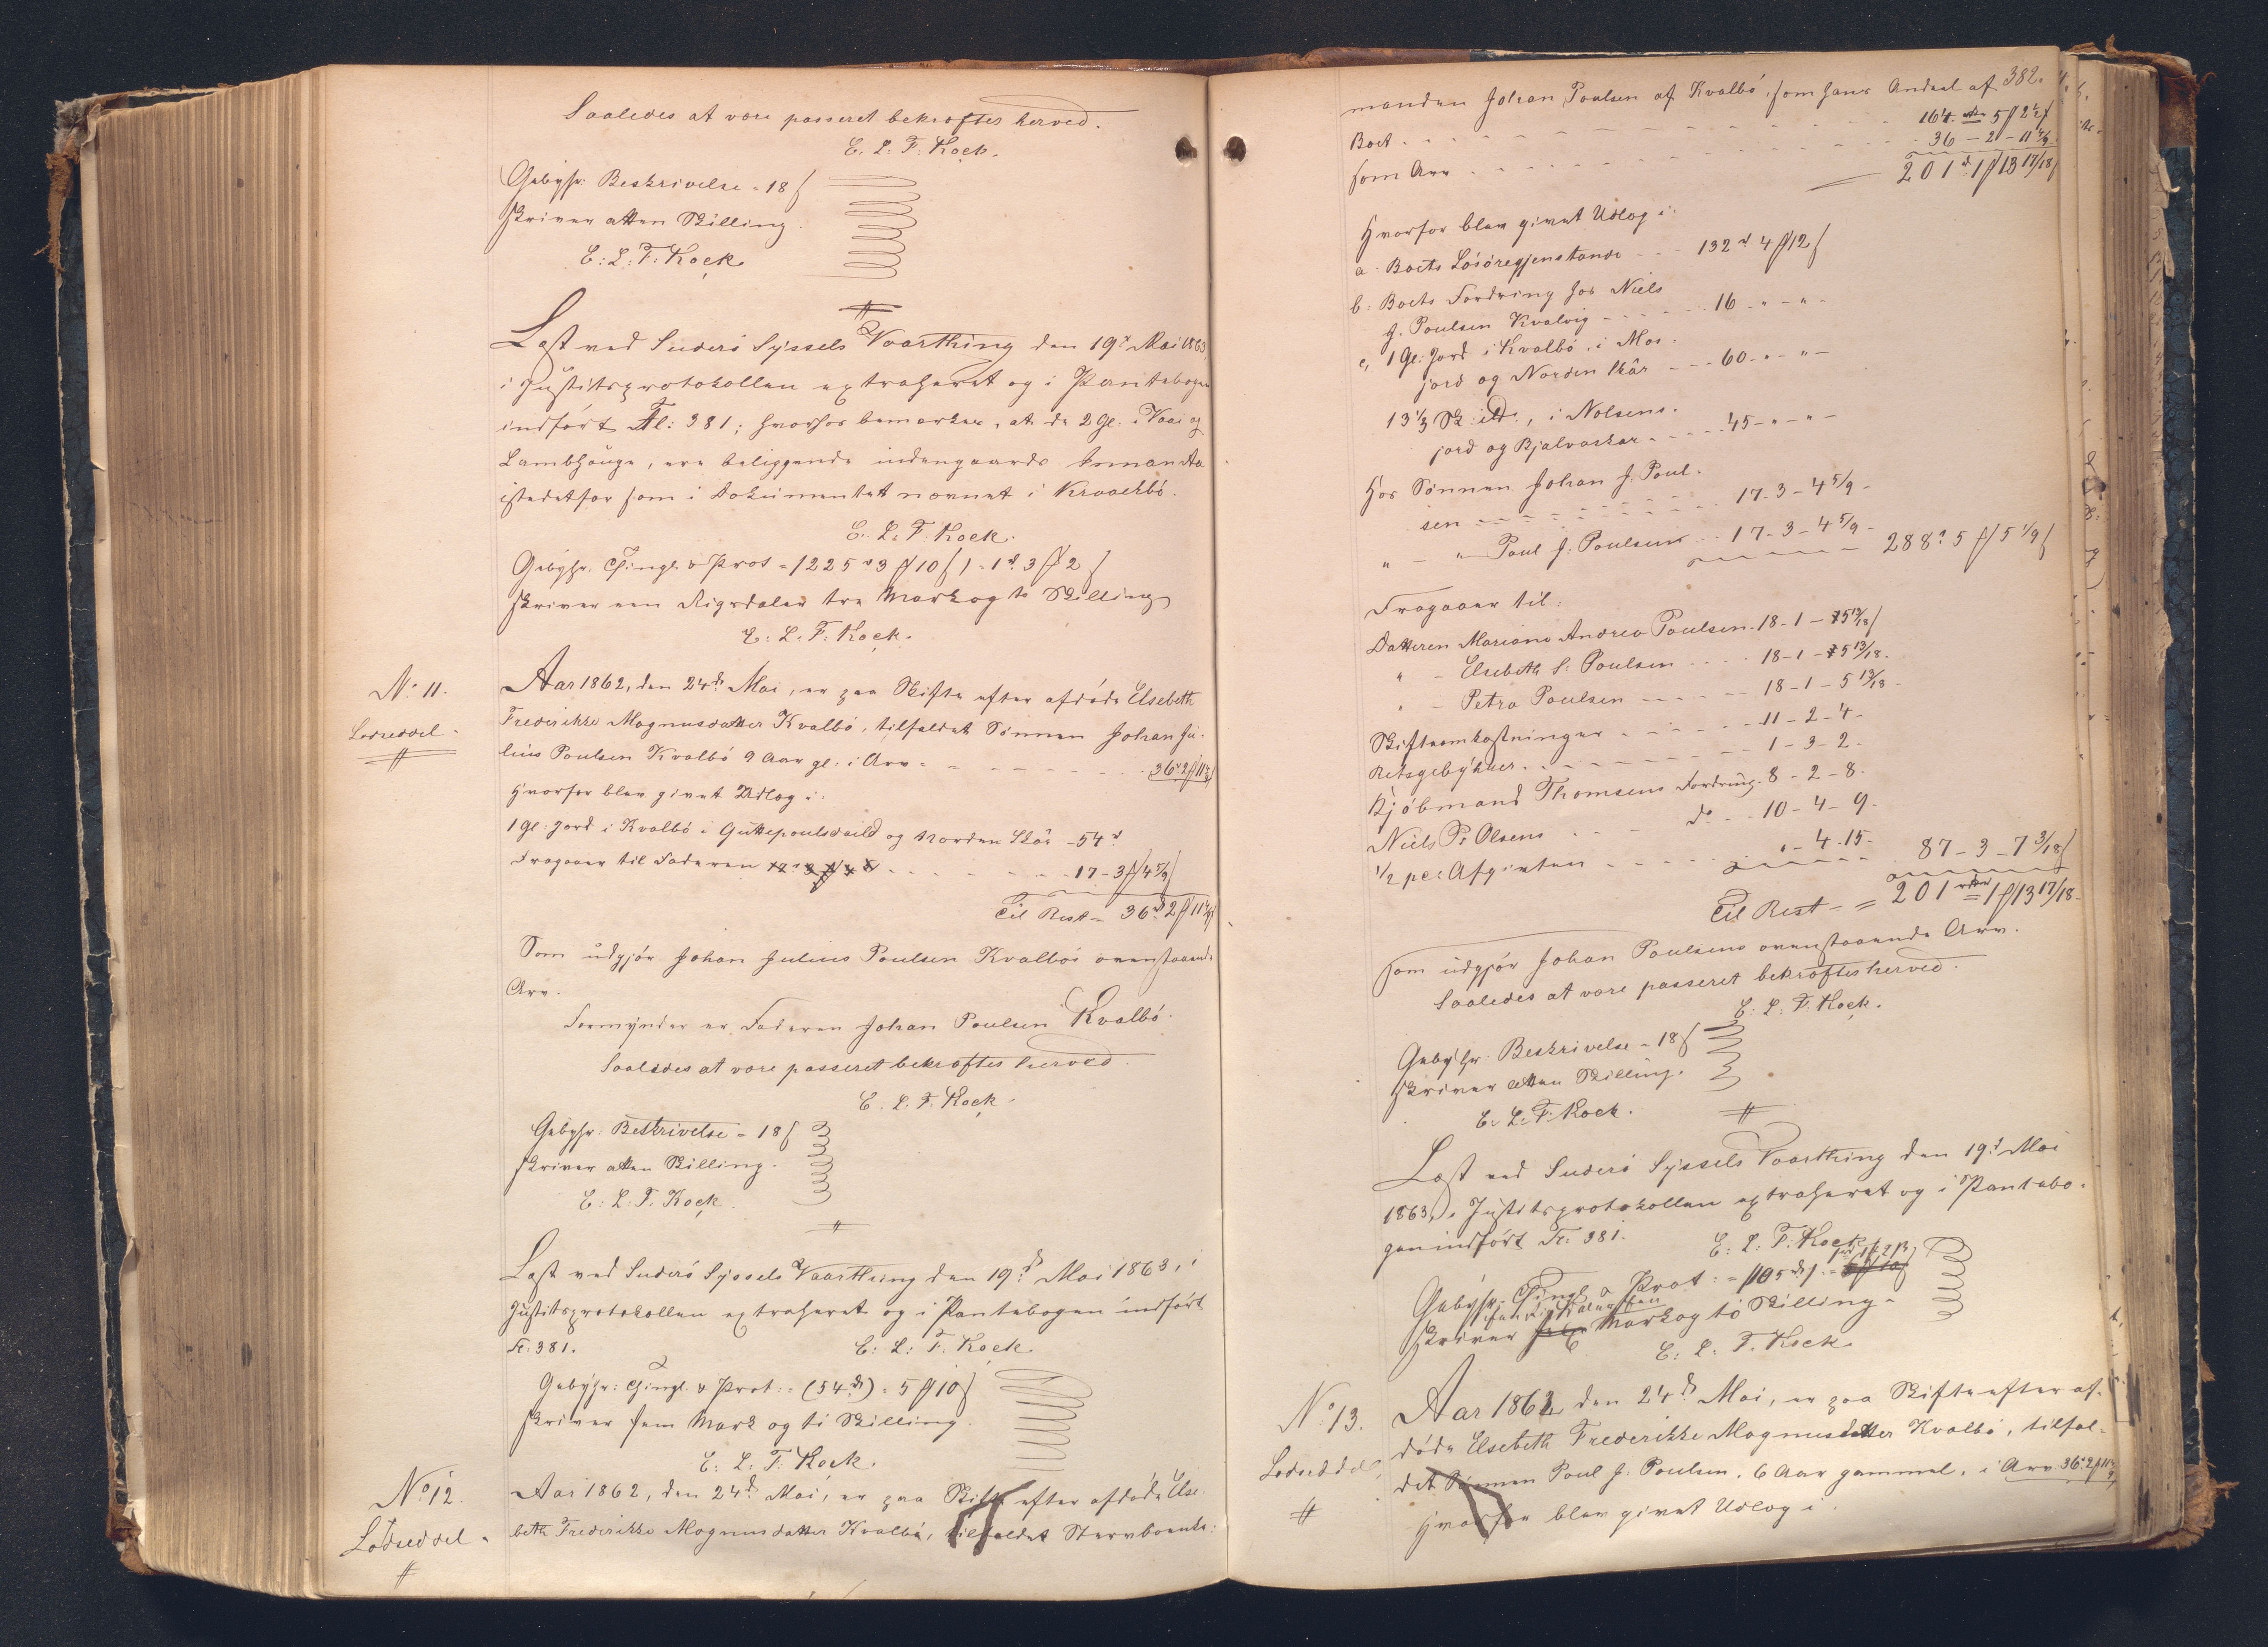 Saaledes at være passeret bekræftes herved.
E. L. F. Kock.
Gebyhr: Beskrivelse = 18 ß
skriver atten Skilling.
E: L: F: Kock.
Læst ved Suderö Syssels Vaarthing den 19de Mai 1863,
i Justitsprotokollen extraheret og i Pantebogen
indført Fl: 381; hvorhos bemærkes, at de 2 Gl. i Vaai og
Lambhauge, ere beliggende indengaards Innan Aa
istedetfor som i Dokumentet nævnet i Kvalbö.
E. L. F. Kock.
Gebyhr. Thingl. & Prot = 1225 rd 3 ℳ 10 ß) = 1 rd. 3 ℳ 2 ß
skriver een Rigsdaler tre Mark og to Skilling
E. L. F. Kock.
No 11.
Lodseddel.
Aar 1862, den 24de Mai, er paa Skifte efter afdøde Elsebeth
Frederikke Magnusdatter Kvalbö, tilfaldet Sönnen Johan Ju-
lius Poulsen Kvalbö 9 Aar gl. i Arv - - - 36 rd 2 ℳ 11 ß
hvorfor blev givet Udlæg i:
1 Gl: Jord i Kvalbö i Guttepoulsdeild og Norden Skår - 54 rd
Fragaaer til Faderen - - - 17 - 3 ℳ 4 5/9 ß
Til Rest = 36 rd 2 ℳ 11 4/9 ß
Som udgjör Johan Julius Poulsen Kvalbös ovenstaaende
Arv.
Formynder er Faderen Johan Poulsen Kvalbö.
Saaledes at være passeret bekræftes herved.
E. L. F. Kock.
Gebyhr: Beskrivelse = 18 ß
skriver atten Skilling.
E: L. F. Kock.
Læst ved Suderö Syssels Vaarthing den 19de Mai 1863, i
Justitsprotokollen extraheret og i Pantebogen indført
Fl: 381. E: L: F. Kock.
Gebyhr: Thingl. & Prot: = (54 rd) = 5 ℳ 10 ß
skriver fem Mark og ti Skilling.
E. L. F. Kock.
No 12.
Lodseddel.
Aar 1862, den 24de Mai, er paa Skifte efter afdøde Else-
beth Frederikke Magnusdatter Kvalbö, tilfaldet Stervboenke-
382.
manden Johan Poulsen af Kvalbö, som hans Andeel af
Boet - - - 164 rd 5 ℳ 2 1/2 ß
som Arv - - - 36 - 2 - 11 4/9
201 rd 1 ℳ 13 17/18 ß
hvorfor blev givet Udlæg i:
a. Boets Lösöregjenstande - - 132 rd 4 ℳ 12 ß
b: Boets Fordring hos Niels
J. Poulsen Kvalvig - - - 16 - " - " -
c, 1 Gl: Jord i Kvalbö, i Mos-
jord og Norden Skår - - - 60 - " - " -
13 1/3 Sk: i do., i Nolsens-
jord og Bjalvaskar - - - 45 - " - " -
Hos Sönnen Johan J. Poul-
sen - - - 17 - 3 - 4 5/9 -
" - Poul J. Poulsen - - 17 - 3 - 4 5/9 - 288 rd 5 ℳ 5 1/9 ß
Fragaaer til:
Datteren Mariane Andrea Poulsen - 18 - 1 - 5 13/18 ß
" - Elsebeth S. Poulsen - - - 18 - 1 - 5 13/18 -
" - Petra Poulsen - - - 18 - 1 - 5 13/18 -
Skifteomkostninger - - - 11 - 2 - 4 -
Retsgebyhrer - - - 1 - 3 - 2 -
Kjöbmand Thomsens Fordring - 8 - 2 - 8 -
Niels P. Olsens - - do - - 10 - 4 - 9 -
1/2 pc: Afgivten - - - " - 4 - 15 - 87 - 3 - 7 3/18 ß
Til Rest - = 201 rd 1 ℳ 13 17/18 -
som udgjör Johan Poulsens ovenstaaende Arv.
Saaledes at være passeret bekræftes herved.
E. L. F. Kock.
Gebyhr: Beskrivelse = 18 ß
skriver atten Skilling.
E. L. F. Kock.
Læst ved Suderö Syssels Vaarthing den 19de Mai
1863, i Justitsprotokollen extraheret og i Pantebo-
gen indført Fl: 381.
E: L. F: Kock.
Gebyhr: Thingl & Prot: = (105 rd) =
skriver Mark og to Skilling.
E. L. F. Kock.
No 13.
Lodseddel,
Aar 1862, den 24de Mai, er paa Skifte efter af-
døde Elsebeth Frederikke Magnusdatter Kvalbö, tilfal-
det Sönnen Poul J. Poulsen, 6 Aar gammel, i Arv 36 rd 2 ℳ 11 4/9
hvorfor blev givet Udlæg i: